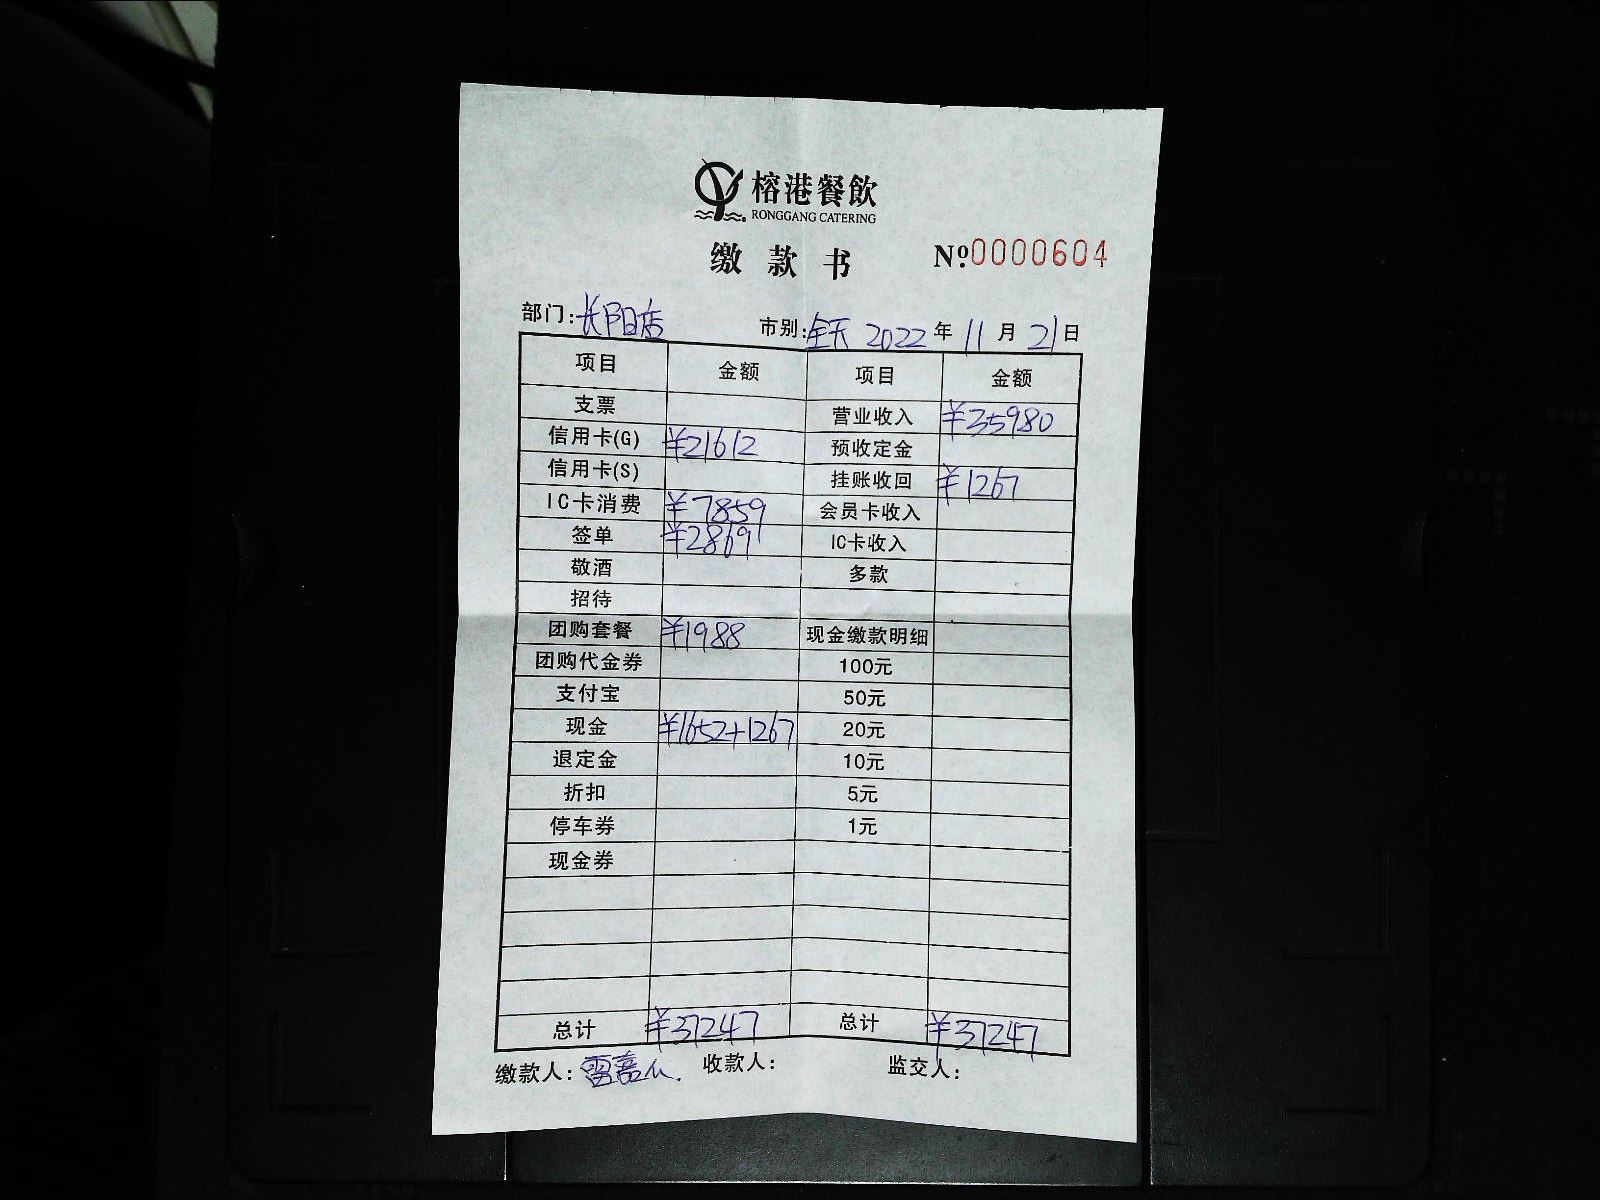 榕港餐飲
RONGGANG CATERING
缴款书 Nº0000604
部门:长阳店 市别:全天 2022年11月21日
项目 金额 项目 金额
支票 营业收入 ¥35980
信用卡(G) ¥21612 预收定金
信用卡(S) 挂账收回 ¥1267
IC卡消费 ¥7859 会员卡收入
签单 ¥2869 IC卡收入
敬酒 多款
招待
团购套餐 ¥1988 现金缴款明细
团购代金券 100元
支付宝 50元
现金 ¥1652+1267 20元
退定金 10元
折扣 5元
停车券 1元
现金券
总计 ¥37247 总计 ¥37247
缴款人: 收款人: 监交人: